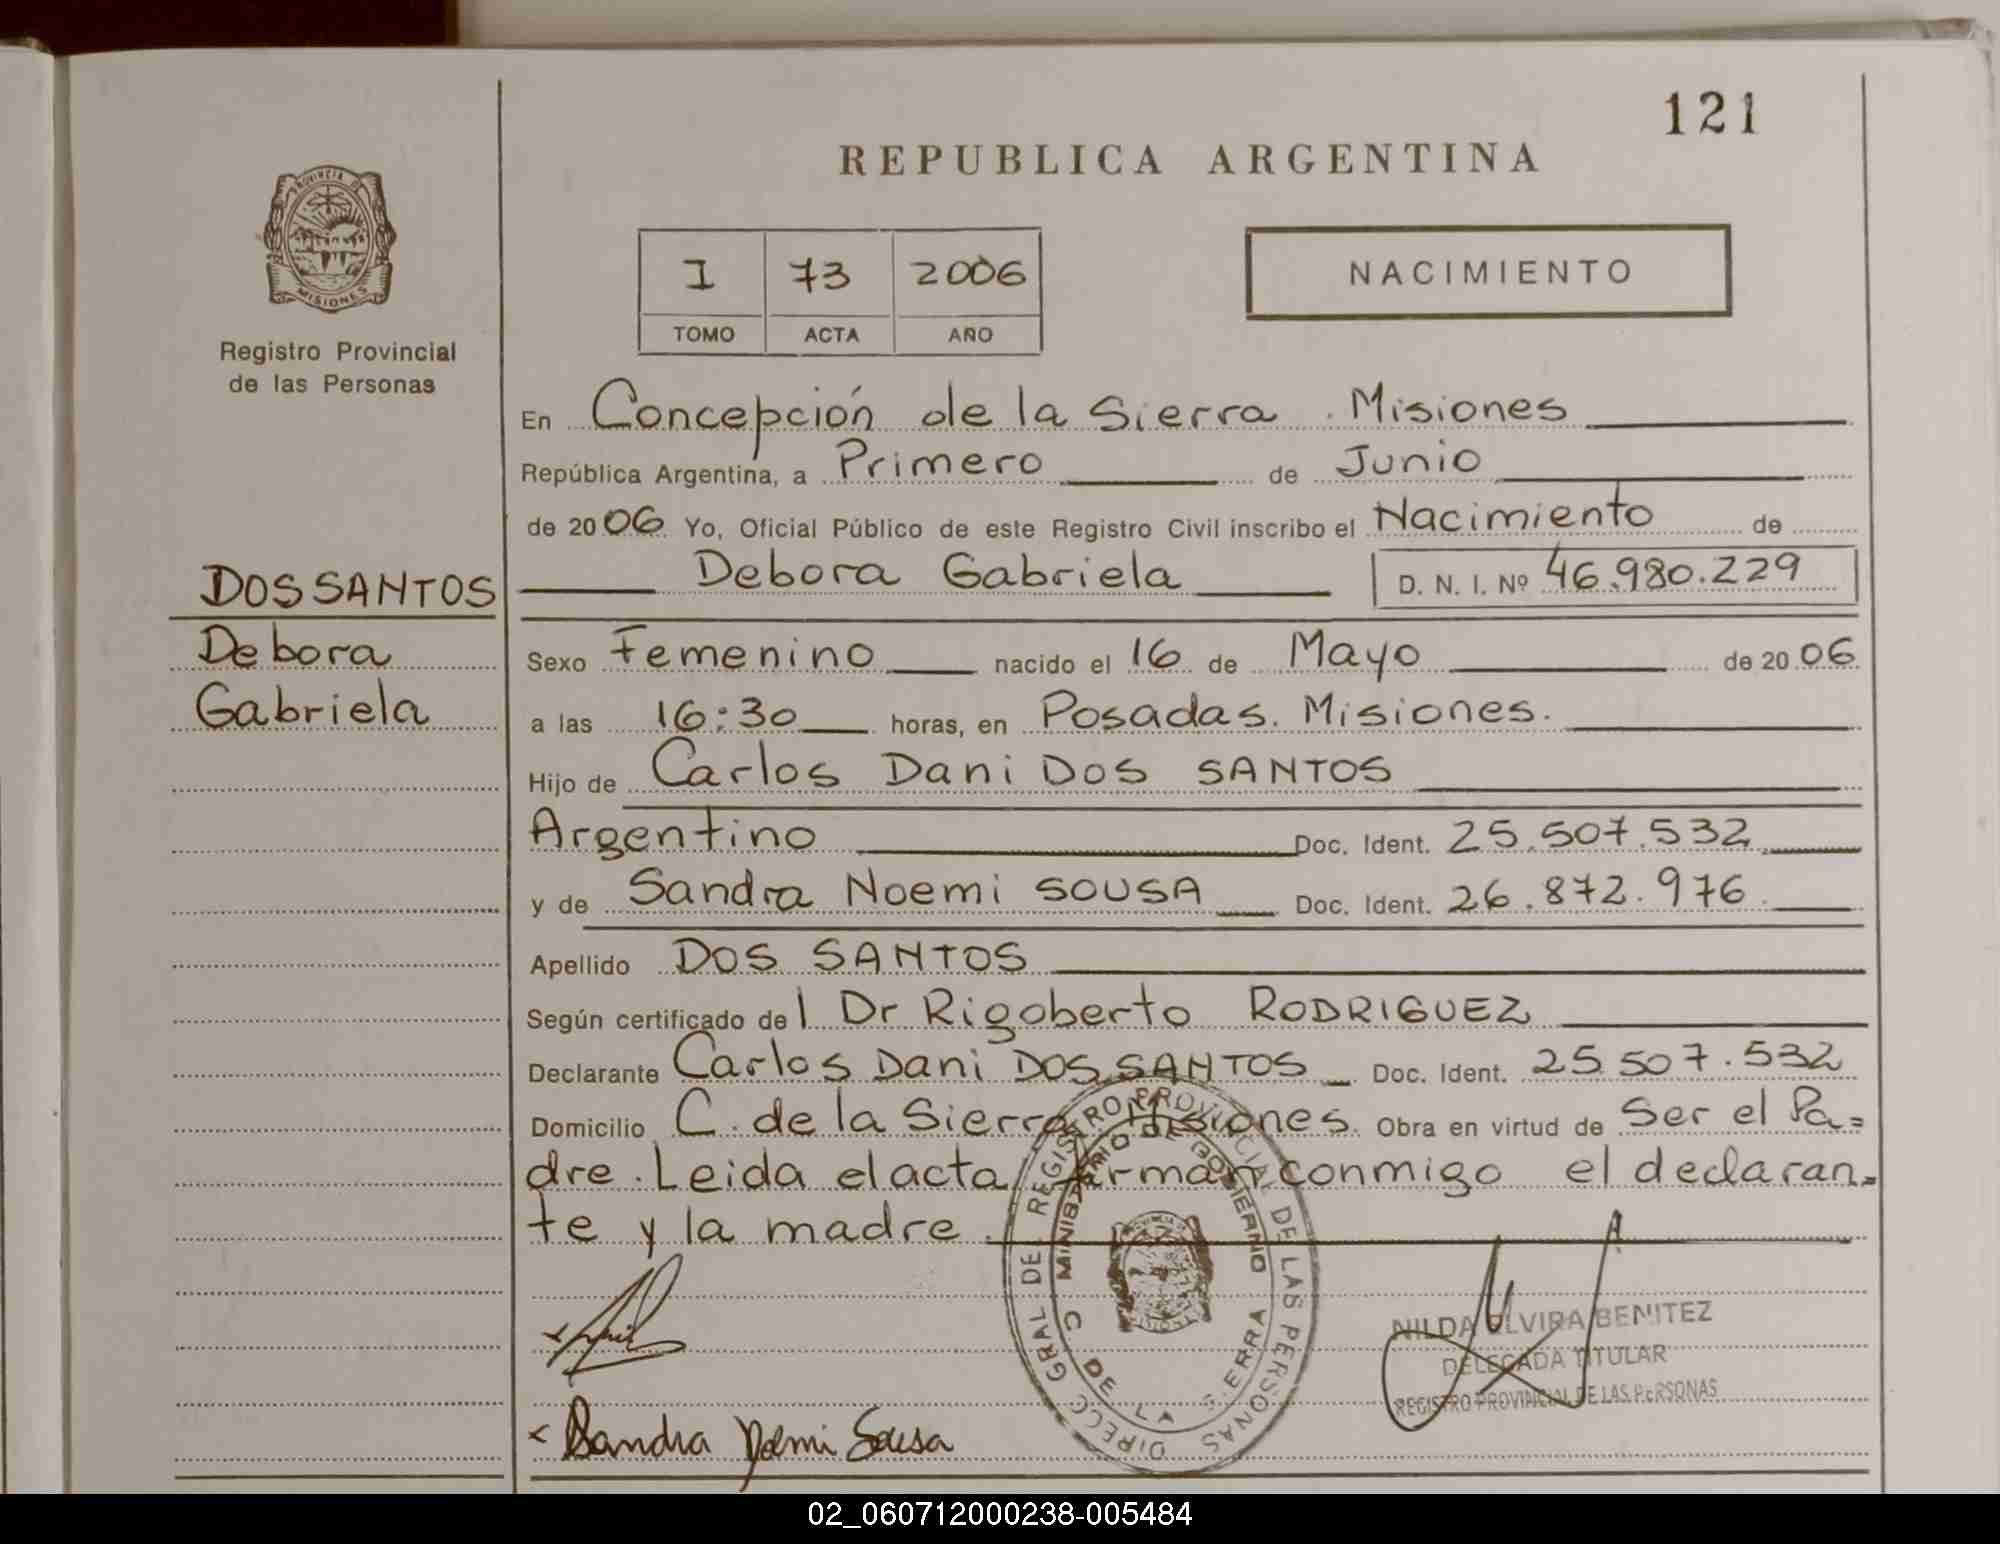 121
REPUBLICA ARGENTINA
PROVINCIA DE
MISIONES
Registro Provincial
de las Personas
I 73 2006
TOMO ACTA AÑO
NACIMIENTO
En Concepción de la Sierra . Misiones
República Argentina, a Primero de Junio
de 2006 Yo, Oficial Público de este Registro Civil inscribo el Nacimiento de
DOS SANTOS
Debora Gabriela D. N. I. Nº 46.980.229
Debora
Sexo Femenino nacido el 16 de Mayo de 2006
Gabriela
a las 16:30 horas, en Posadas. Misiones.
Hijo de Carlos Dani DOS SANTOS
Argentino Doc. Ident. 25.507.532
y de Sandra Noemi SOUSA Doc. Ident. 26.872.976
Apellido DOS SANTOS
Según certificado del Dr Rigoberto RODRIGUEZ
Declarante Carlos Dani DOS SANTOS Doc. Ident. 25.507.532
Domicilio C. de la Sierra Misiones. Obra en virtud de Ser el Pa=
dre. Leida el acta firman conmigo el declaran=
te y la madre.
DIRECC GRAL DE REGISTRO PROVINCIAL DE LAS PERSONAS
MINISTERIO DE GOBIERNO
C DE LA SIERRA
NILDA ELVIRA BENITEZ
DELEGADA TITULAR
REGISTRO PROVINCIAL DE LAS PERSONAS
Sandra Noemi Sousa
02_060712000238-005484